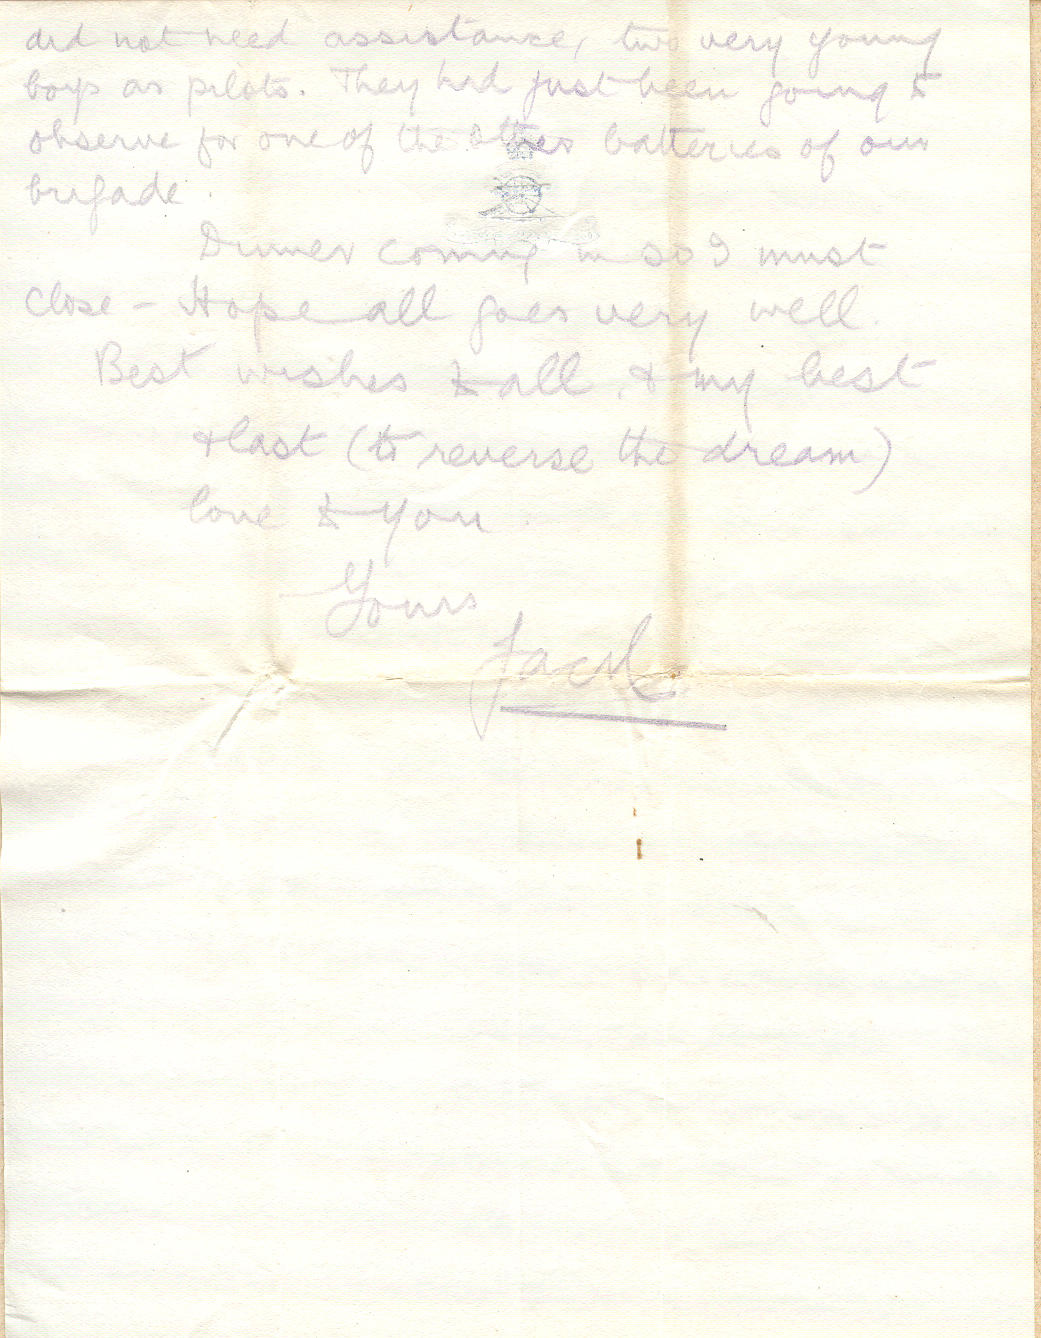 did not need assistance, two very young
boys as pilots. They had just been going to
observe for one of the other batteries of our
brigade.
Dinner coming in so I must
close - Hope all goes very well.
Best wishes to all, & my best
& last (to reverse the dream)
love to you.
Yours
Jack